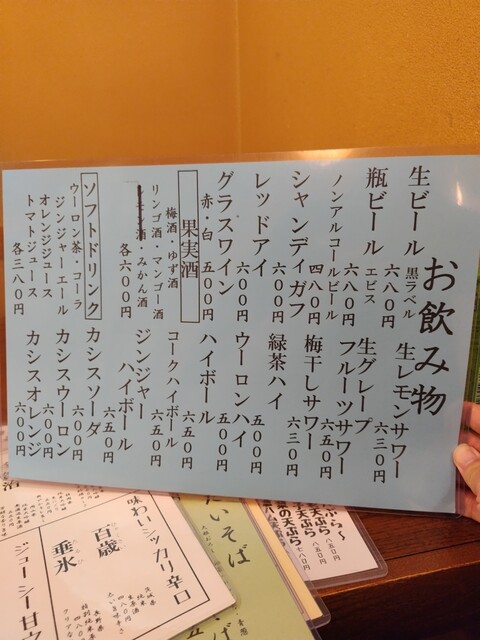 お飲み物
生ビール 黒ラベル 六八〇円
瓶ビール エビス 六八〇円
ノンアルコールビール 四八〇円
シャンディガフ 六〇〇円
レッドアイ 六〇〇円
グラスワイン
赤・白 五〇〇円
果実酒
梅酒・ゆず酒
リンゴ酒・マンゴー酒
酒・みかん酒
各六〇〇円
ソフトドリンク
ウーロン茶・コーラ
ジンジャーエール
オレンジジュース
トマトジュース
各三八〇円
生レモンサワー 六三〇円
生グレープ
フルーツサワー 六五〇円
梅干しサワー 六三〇円
緑茶ハイ 五〇〇円
ウーロンハイ 五〇〇円
ハイボール 五五〇円
コークハイボール 六五〇円
ジンジャー
ハイボール 六五〇円
カシスソーダ 六〇〇円
カシスウーロン 六〇〇円
カシスオレンジ 六〇〇円
味わいシッカリ辛口
百歳
垂氷
ジューシー甘ウ
だいそば
天ぷら
八五〇円
八五〇円
七八〇円